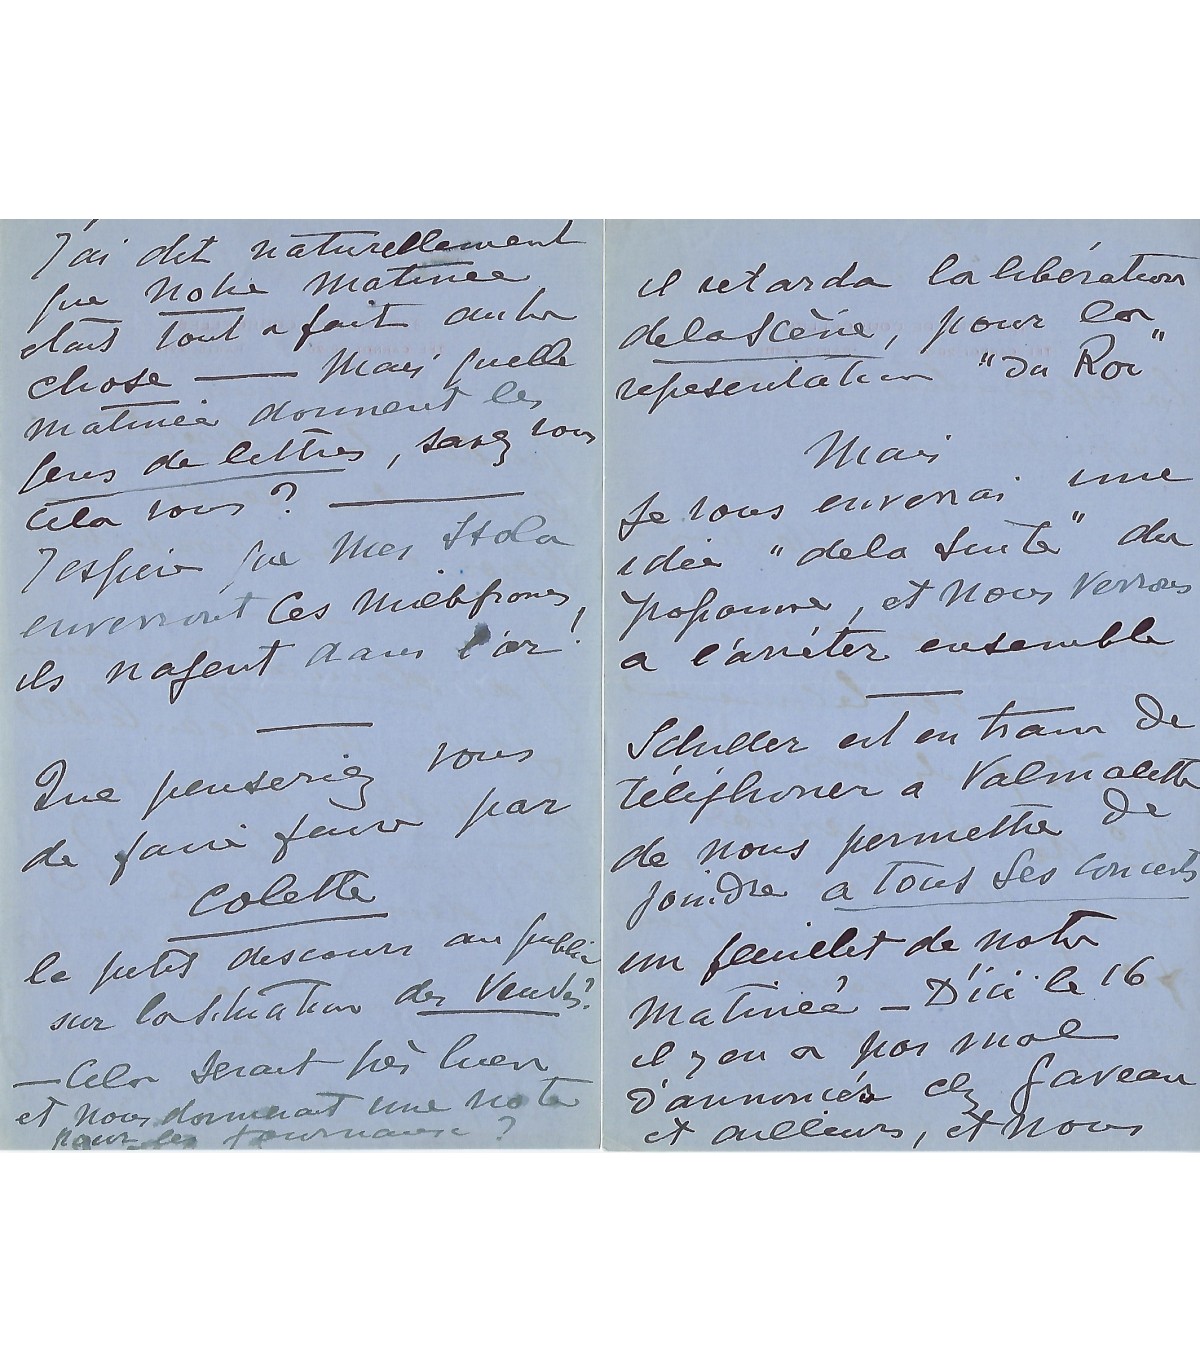 J'ai dit naturellement
que notre matinée
était tout a fait autre
chose — Mais quelle
matinée donnent les
gens de lettres, savez vous
cela vous ? —
J'espère que mes
enverront ces
ils nagent dans l'or !
Que penseriez vous
de faire faire par
Colette
le petit discours au public
sur la situation des Veuves ?
— Cela serait très bien
et nous donnerait une note
pour les journaux ?
il retarda la libération
de la Scène, pour la
représentation "du Roi"
Mais
Je vous enverrai une
idée "de la suite" du
programme, et nous verrons
a l'arrêter ensemble
Schiller est en train de
téléphoner a Valmalette
de nous permettre de
joindre a tous ses concerts
un feuillet de notre
Matinée — D'ici le 16
il y en a pas mal
d'annoncés chez Gaveau
et ailleurs, et nous